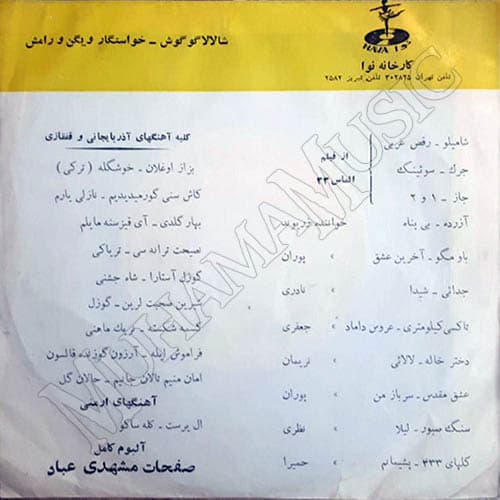 شالالا گوگوش - خواستگار ویگن و رامش
NAVA نوا
کارخانه نوا
تلفن تهران ۳۰۲۸۲۵ تلفن تبریز ۲۵۸۲
شامیلو - رقص عربی
جرک - سوئینک
جاز - ۱ و ۲
از فیلم
الماس ۳۳
آزرده - بی پناه خواننده زریوند
باد میگو - آخرین عشق » پوران
جدائی - شیدا » نادری
تاکسی کیلومتری - عروس داماد » جعفری
دختر خاله - لالائی » نریمان
عشق مقدس - سرباز من » پوران
سنگ صبور - لیلا » نظری
گلهای ۳۳۳ - پشیمانم » حمیرا
کلیه آهنگهای آذربایجانی و قفقازی
بزاز اوغلان - خوشگله (ترکی)
کاش سنی گورمیدیدیم - نازلی یارم
بهار گلدی - آی قیزسنه مایلم
نصیحت ترانه سی - تریاکی
گوزل آستارا - شاه جشنی
شیرین صحبت لرین - گوزل
کعبه شکسته - تریک ماهنی
فراموش ایله - آرزون گوزنده قالسون
امان منیم نالان جانیم - جالان گل
آهنگهای ارمنی
ال پرست - کله ساکو
آلبوم کامل
صفحات مشهدی عباد
MUHAMAMUSIC